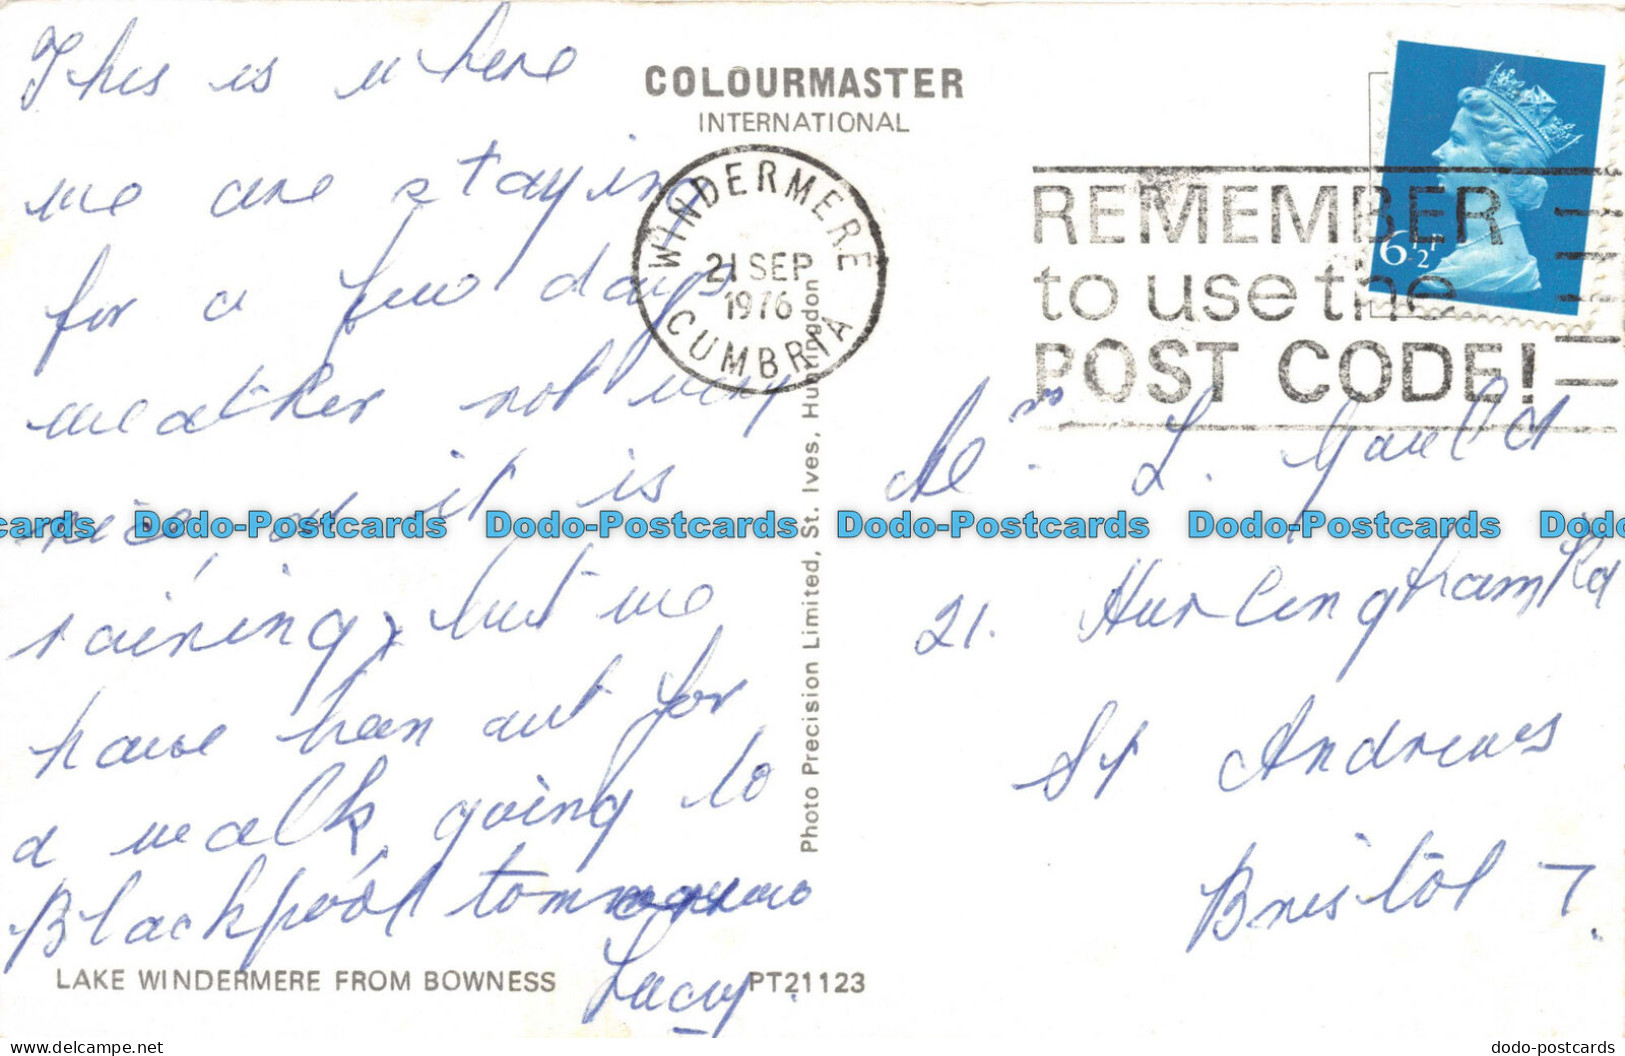 This is where
we are staying
for a few days
weather not very
nice, at it is
raining, but we
have been out for
a walk, going to
Blackpool tommorow
Lucy
COLOURMASTER
INTERNATIONAL
WINDERMERE
21 SEP
1976
CUMBRIA
REMEMBER
to use the
POST CODE!
6½P
L. Gauld
21. Hurlingham Rd
St Andrews
Bristol 7.
Photo Precision Limited, St. Ives, Huntingdon
LAKE WINDERMERE FROM BOWNESS
PT21123
cards Dodo-Postcards Dodo-Postcards Dodo-Postcards Dodo-Postcards Dodo
www.delcampe.net
dodo-postcards